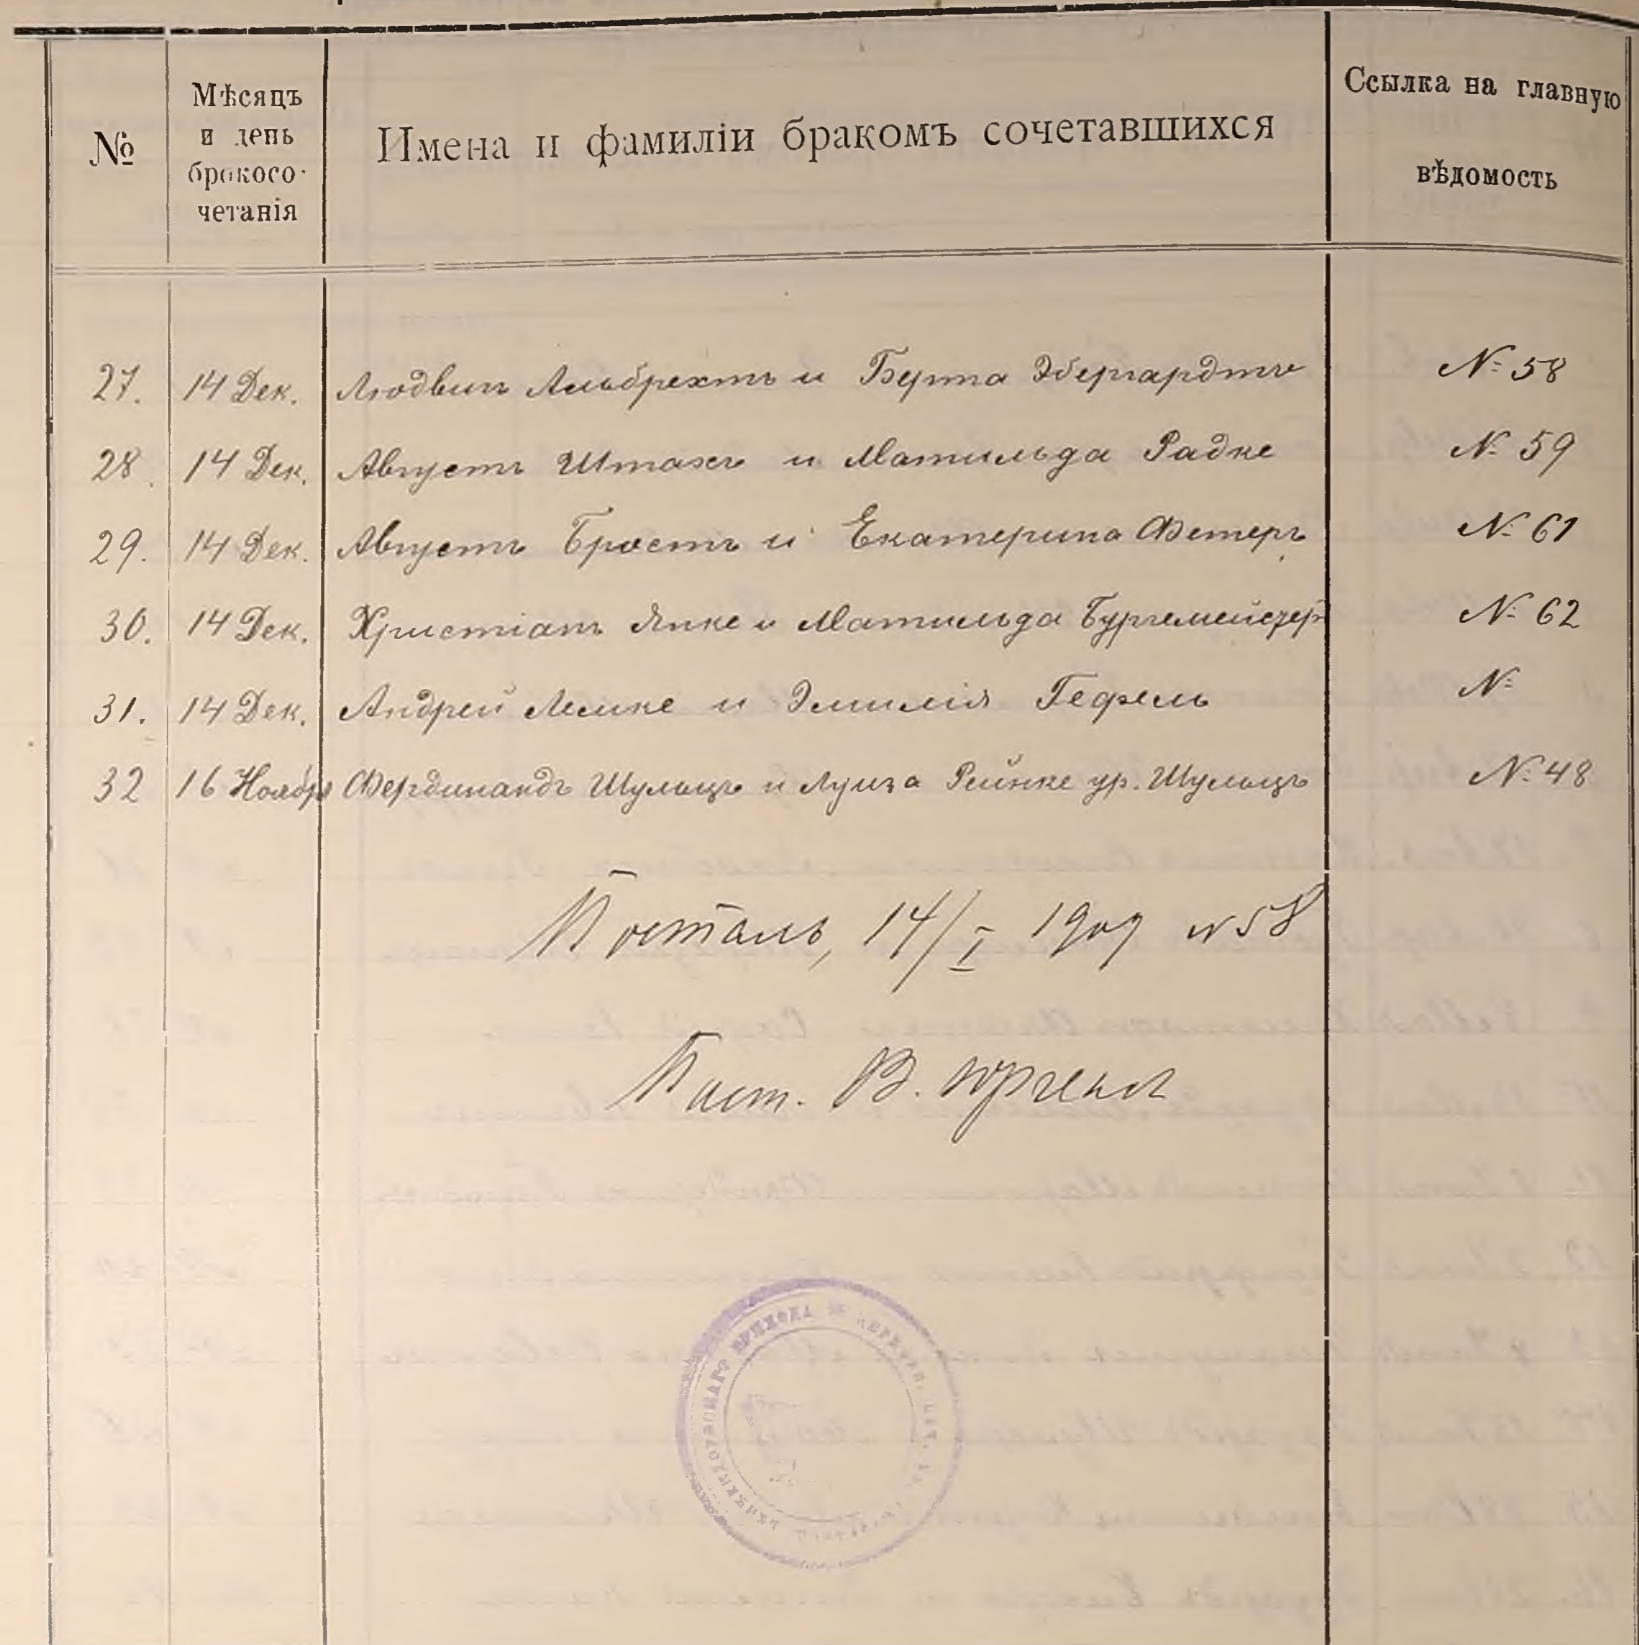 №
Мѣсяцъ
и день
брокосо-
четанія
Имена и фамиліи бракомъ сочетавшихся
Ссылка на главную
вѣдомость
27. 14 Дек. Людвигъ Альбрехтъ и Берта Эбергардтъ № 58
28. 14 Дек. Августъ Штахъ и Матильда Радке № 59
29. 14 Дек. Августъ Бростъ и Екатерина Феттеръ № 61
30. 14 Дек. Христіанъ Янке и Матильда Бургемейстеръ № 62
31. 14 Дек. Андрей Лемке и Эмилія Гефель №
32 16 Ноября Фердинандъ Шульцъ и Луиза Рейнке ур. Шульцъ № 48
Постталь, 14/I 1909 № 58
Паст. В.
ПРИХОДА